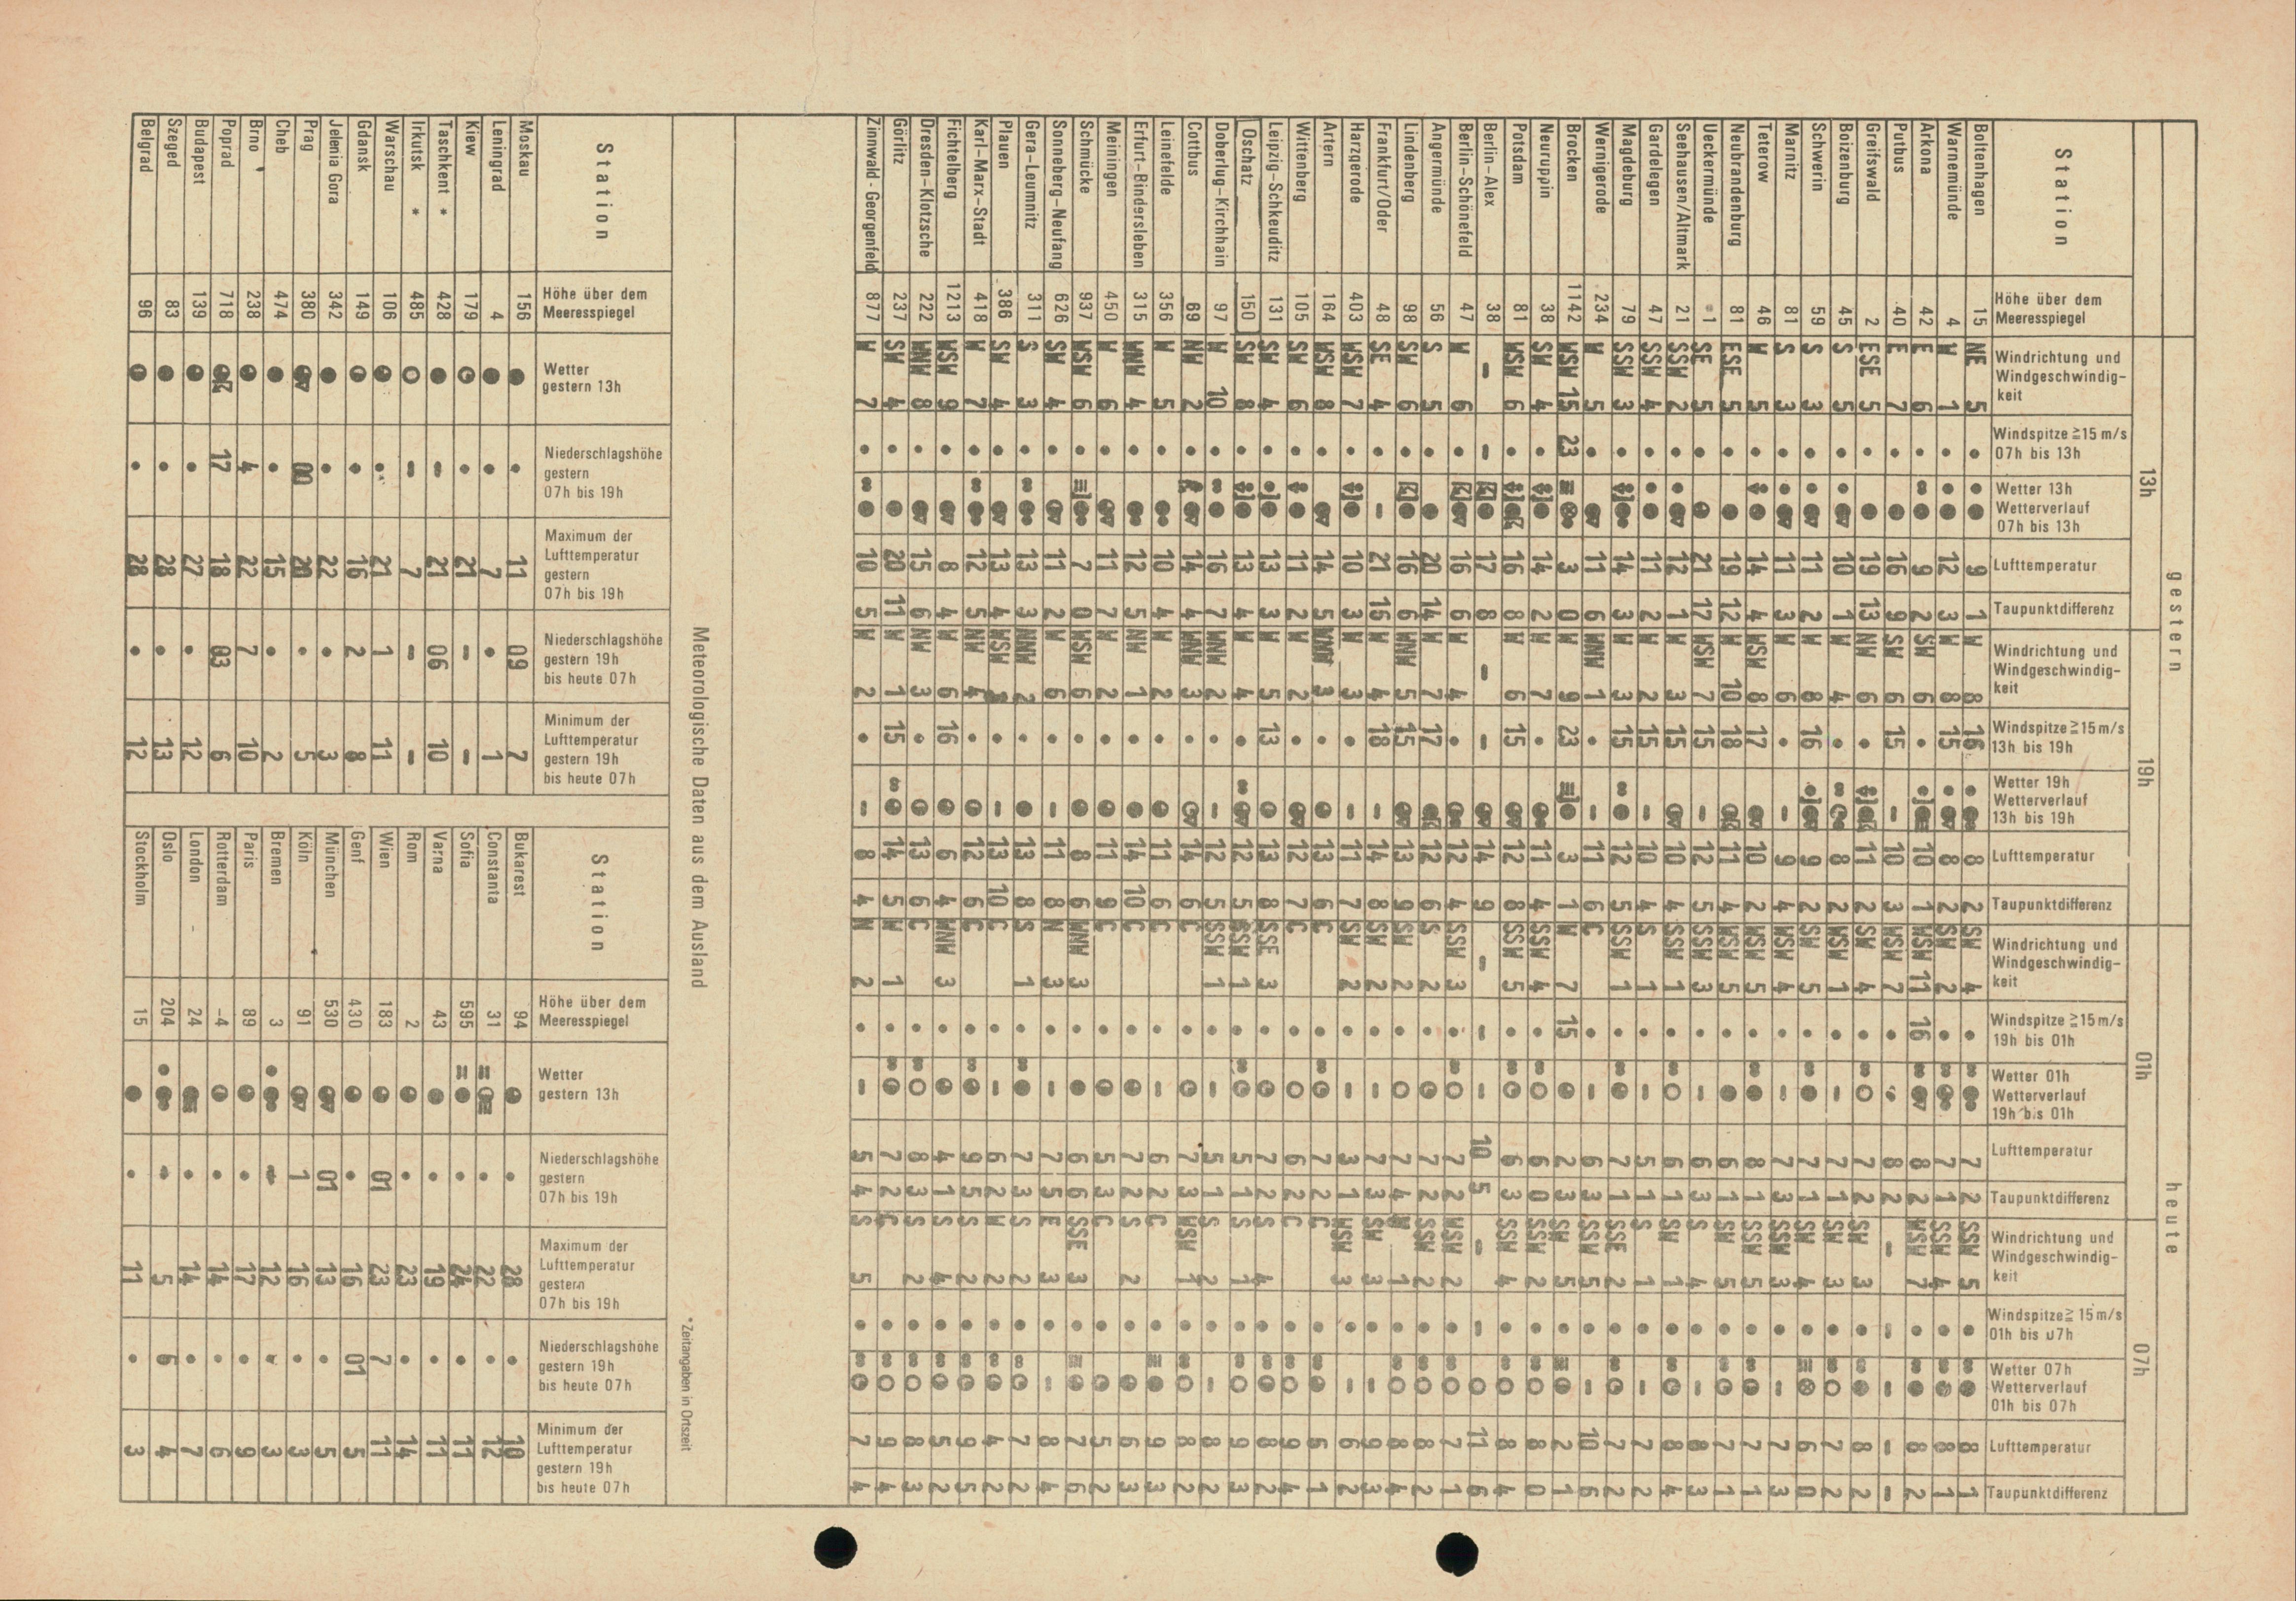 gestern heute
13h 19h 01h 07h
Station
Höhe über dem Meeresspiegel
Windrichtung und Windgeschwindigkeit
Windspitze ≧15 m/s 07h bis 13h
Wetter 13h Wetterverlauf 07h bis 13h
Lufttemperatur
Taupunktdifferenz
Windrichtung und Windgeschwindigkeit
Windspitze ≧15 m/s 13h bis 19h
Wetter 19h Wetterverlauf 13h bis 19h
Lufttemperatur
Taupunktdifferenz
Windrichtung und Windgeschwindigkeit
Windspitze ≧15 m/s 19h bis 01h
Wetter 01h Wetterverlauf 19h bis 01h
Lufttemperatur
Taupunktdifferenz
Windrichtung und Windgeschwindigkeit
Windspitze ≧ 15 m/s 01h bis 07h
Wetter 07h Wetterverlauf 01h bis 07h
Lufttemperatur
Taupunktdifferenz
Boltenhagen 15 NE 5 • 9 1 W 8 16 8 2 SW 4 • 7 2 SSW 5 • 8 1
Warnemünde 4 W 1 • 12 3 W 8 15 8 2 SW 2 • 7 1 SSW 4 • 8 1
Arkona 42 E 6 • 9 2 SW 6 • 10 1 WSW 11 16 8 2 WSW 7 • 8 2
Putbus 40 E 7 • 16 9 SW 6 15 – 10 3 WSW 7 • 8 2 – – – – –
Greifswald 2 ESE 5 • 19 13 NW 6 • 11 2 SW 4 • 7 2 SW 3 • 8 2
Boizenburg 45 S 5 • 10 1 W 4 • 8 2 WSW 1 • – 7 1 SSW 3 • 7 2
Schwerin 59 S 3 • 11 2 W 8 16 9 2 SW 5 • 7 1 SSW 4 • 6 0
Marnitz 81 S 3 • 11 3 W 6 • – 9 4 WSW 4 • – 7 3 SSW 3 • – 7 3
Teterow 46 W 5 • 14 4 WSW 8 17 10 2 WSW 5 • 8 1 SSW 5 • 7 1
Neubrandenburg 81 ESE 5 • 19 12 W 10 18 11 4 WSW 5 • 6 1 SSW 5 • 7 1
Ueckermünde 1 SE 5 • 21 17 WSW 7 15 – 12 5 SSW 3 • – 6 3 S 4 • – 8 3
Seehausen/Altmark 21 SSW 2 • 12 1 W 3 15 10 4 SSW 1 • 6 1 SW 1 • 8 4
Gardelegen 47 SSW 4 • 11 2 W 2 15 – 10 4 S 1 • – 5 1 S 1 • – 7 2
Magdeburg 79 SSW 3 • 14 3 W 3 15 12 5 SSW 1 • 7 1 SSE 2 • 7 2
Wernigerode 234 W 5 • 11 6 WNW 1 • – 11 6 C • – 6 3 SSW 5 • – 10 6
Brocken 1142 WSW 15 23 3 0 W 9 23 3 1 W 7 15 2 3 SW 5 • 2 1
Neuruppin 38 SW 4 • 14 2 W 7 • 11 4 SSW 4 • 6 0 SSW 2 • 8 0
Potsdam 81 WSW 6 • 16 8 W 6 15 12 8 SSW 5 • 6 3 SSW 4 • 8 4
Berlin-Alex 38 – – 17 8 – – 14 9 – – – 10 5 – – 11 6
Berlin-Schönefeld 47 W 6 • 16 6 W 4 • 12 4 SSW 3 • 7 2 WSW 2 • 7 1
Angermünde 56 S 5 • 20 14 W 7 17 12 6 S 2 • 7 2 SSW 2 • 8 2
Lindenberg 98 SW 6 • 16 6 WNW 5 15 13 9 SW 2 • 7 4 W 1 • 8 4
Frankfurt/Oder 48 SE 4 • – 21 15 W 4 18 – 14 8 SW 2 • – 7 3 SW 3 • – 9 3
Harzgerode 403 WSW 7 • 10 3 W 3 • – 11 7 SW 2 • – 3 1 WSW 3 • – 6 2
Artern 164 WSW 8 • 14 5 WNW 3 • 13 6 C • 7 2 C • 6 1
Wittenberg 105 SW 6 • 11 2 W 2 • 12 7 C • 6 2 C • 9 4
Leipzig-Schkeuditz 131 SW 4 • 13 3 W 5 13 13 8 SSE 3 • 7 2 S 4 • 8 2
Oschatz 150 SW 8 • 13 4 W 4 • 12 5 SSW 1 • 5 1 S 1 • 9 3
Doberlug-Kirchhain 97 W 10 • 16 7 WNW 2 • – 12 5 SSW 1 • – 5 1 S 2 • – 8 2
Cottbus 69 NW 2 • 14 4 WNW 3 • 14 6 C • 7 3 WSW 1 • 8 2
Leinefelde 356 W 5 • 10 4 W 2 • 11 6 C • – 6 2 C • 9 3
Erfurt-Bindersleben 315 WNW 4 • 12 5 NW 1 • 14 10 C • 7 2 S 2 • 6 3
Meiningen 450 W 6 • 11 7 W 2 • 11 9 C • 5 3 C • 5 2
Schmücke 937 WSW 6 • 7 0 WSW 6 • 8 6 WNW 3 • 6 6 SSE 3 • 7 6
Sonneberg-Neufang 626 SW 4 • 11 2 W 6 • – 11 8 N 3 • – 7 5 E 3 • – 8 4
Gera-Leumnitz 311 S 3 • 13 3 NNW 2 • 13 8 S 1 • 7 3 S 2 • 7 2
Plauen 386 SW 4 • 13 4 WSW • – 13 10 C • – 6 2 W 2 • 4 2
Karl-Marx-Stadt 418 W 7 • 12 5 NW 4 • 12 6 C • 9 5 S 2 • 9 5
Fichtelberg 1213 WSW 9 • 8 4 W 6 16 6 4 WNW 3 • 4 1 S 4 • 5 2
Dresden-Klotzsche 222 WNW 8 • 15 6 NW 3 • 13 6 C • 8 3 S 2 • 8 3
Görlitz 237 SW 4 • 20 11 W 1 15 14 5 W 1 • 7 2 C • 9 4
Zinnwald-Georgenfeld 877 W 7 • 10 5 W 2 • – 8 4 N 2 • – 5 4 S 5 • 7 4
Meteorologische Daten aus dem Ausland
*Zeitangaben in Ortszeit
Station
Höhe über dem Meeresspiegel
Wetter gestern 13h
Niederschlagshöhe gestern 07h bis 19h
Maximum der Lufttemperatur gestern 07h bis 19h
Niederschlagshöhe gestern 19h bis heute 07h
Minimum der Lufttemperatur gestern 19h bis heute 07h
Station
Höhe über dem Meeresspiegel
Wetter gestern 13h
Niederschlagshöhe gestern 07h bis 19h
Maximum der Lufttemperatur gestern 07h bis 19h
Niederschlagshöhe gestern 19h bis heute 07h
Minimum der Lufttemperatur gestern 19h bis heute 07h
Moskau 156 • 11 09 7 Bukarest 94 • 28 • 10
Leningrad 4 • 7 • 1 Constanta 31 • 22 • 12
Kiew 179 • 21 – – Sofia 595 • 24 • 11
Taschkent * 428 – 21 06 10 Varna 43 • 19 • 11
Irkutsk * 485 – 7 – – Rom 2 • 23 • 14
Warschau 106 • 21 1 11 Wien 183 01 23 7 11
Gdansk 149 • 16 2 8 Genf 430 • 16 01 5
Jelenia Gora 342 • 22 • 3 München 530 01 13 • 5
Prag 380 00 20 • 5 Köln 91 1 16 • 3
Cheb 474 • 15 • 2 Bremen 3 12 • 3
Brno 238 4 22 7 10 Paris 89 • 17 • 9
Poprad 718 17 18 03 6 Rotterdam -4 • 14 • 6
Budapest 139 • 27 • 12 London 24 • 14 • 7
Szeged 83 • 28 • 13 Oslo 204 • 5 6 4
Belgrad 96 • 28 • 12 Stockholm 15 • 11 • 3